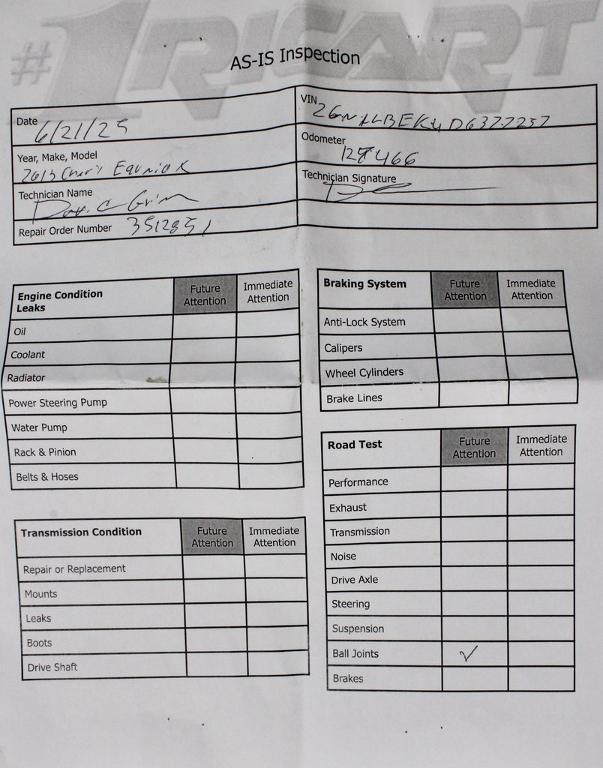 #1RICART
AS-IS Inspection
Date 6/21/25
VIN 2GNALBEK4D6377257
Year, Make, Model 2013 Chevy Equinox
Odometer 128466
Technician Name
Technician Signature
Repair Order Number 3512851
Engine Condition Leaks Future Attention Immediate Attention
Oil
Coolant
Radiator
Power Steering Pump
Water Pump
Rack & Pinion
Belts & Hoses
Transmission Condition Future Attention Immediate Attention
Repair or Replacement
Mounts
Leaks
Boots
Drive Shaft
Braking System Future Attention Immediate Attention
Anti-Lock System
Calipers
Wheel Cylinders
Brake Lines
Road Test Future Attention Immediate Attention
Performance
Exhaust
Transmission
Noise
Drive Axle
Steering
Suspension
Ball Joints ✓
Brakes